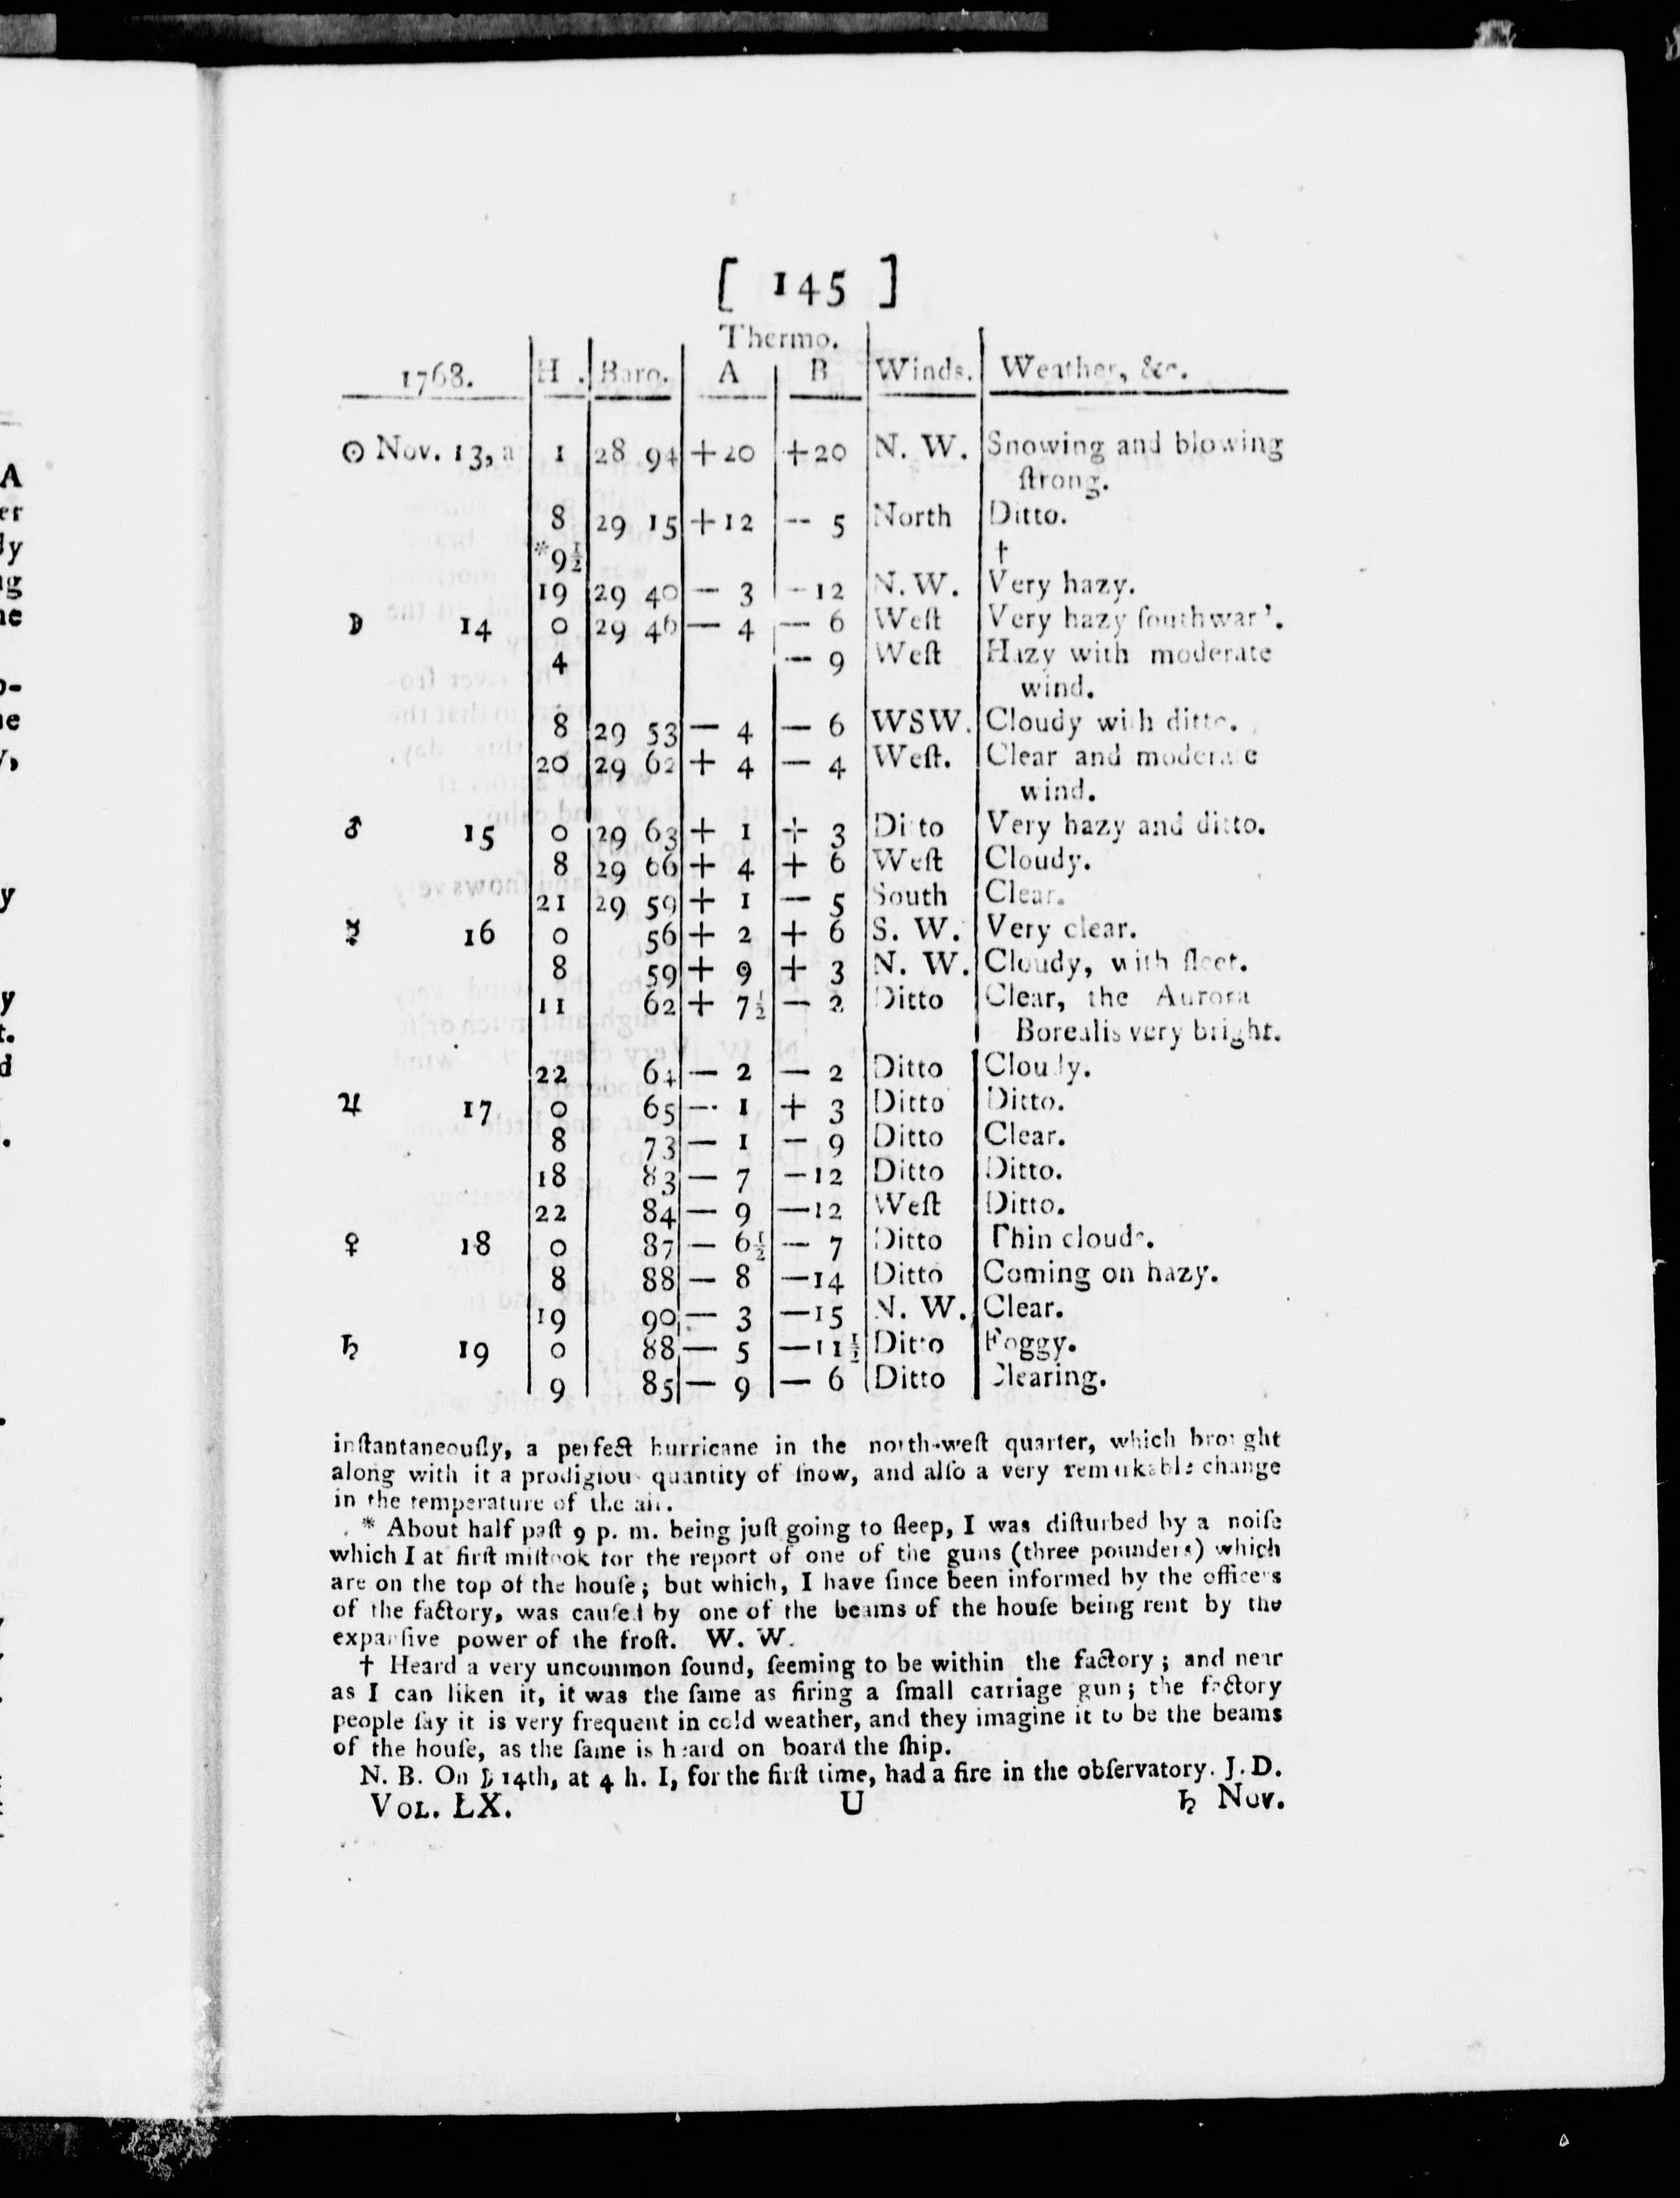 [ 145 ]
Thermo.
1768. H. Baro. A B Winds. Weather, &c.
☉ Nov. 13, a 1 28 94 +20 +20 N. W. Snowing and blowing
ſtrong.
8 29 15 +12 — 5 North Ditto.
*9½ †
19 29 40 — 3 —12 N. W. Very hazy.
☽ 14 0 29 46 — 4 — 6 Weſt Very hazy ſouthward.
4 — 9 Weſt Hazy with moderate
wind.
8 29 53 — 4 — 6 WSW. Cloudy with ditto.
20 29 62 + 4 — 4 Weſt. Clear and moderate
wind.
♂ 15 0 29 63 + 1 + 3 Ditto Very hazy and ditto.
8 29 66 + 4 + 6 Weſt Cloudy.
21 29 59 + 1 — 5 South Clear.
☿ 16 0 56 + 2 + 6 S. W. Very clear.
8 59 + 9 + 3 N. W. Cloudy, with ſleet.
11 62 + 7½ — 2 Ditto Clear, the Aurora
Borealis very bright.
22 64 — 2 — 2 Ditto Cloudy.
♃ 17 0 65 — 1 + 3 Ditto Ditto.
8 73 — 1 — 9 Ditto Clear.
18 83 — 7 —12 Ditto Ditto.
22 84 — 9 —12 Weſt Ditto.
♀ 18 0 87 — 6½ — 7 Ditto Thin clouds.
8 88 — 8 —14 Ditto Coming on hazy.
19 90 — 3 —15 N. W. Clear.
♄ 19 0 88 — 5 —11½ Ditto Foggy.
9 85 — 9 — 6 Ditto Clearing.
inſtantaneouſly, a perfect hurricane in the north-weſt quarter, which brought
along with it a prodigious quantity of ſnow, and alſo a very remarkable change
in the temperature of the air.
* About half paſt 9 p. m. being juſt going to ſleep, I was diſturbed by a noiſe
which I at firſt miſtook for the report of one of the guns (three pounders) which
are on the top of the houſe; but which, I have ſince been informed by the officers
of the factory, was cauſed by one of the beams of the houſe being rent by the
expanſive power of the froſt. W. W.
† Heard a very uncommon ſound, ſeeming to be within the factory; and near
as I can liken it, it was the ſame as firing a ſmall carriage gun; the factory
people ſay it is very frequent in cold weather, and they imagine it to be the beams
of the houſe, as the ſame is heard on board the ſhip.
N. B. On ☽ 14th, at 4 h. I, for the firſt time, had a fire in the obſervatory. J. D.
VOL. LX. U ♄ Nov.